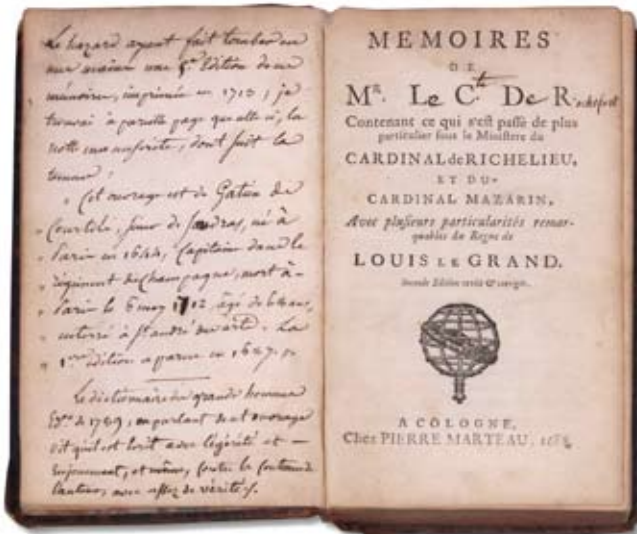 Le hazard ayant fait tomber en
mes mains une 5e Edition de ces
mémoires, imprimée en 1713, je
trouvai à pareille page que celle ci, la
notte manuscrite, dont suit la
teneur :
" Cet ouvrage est de Gatien de
" Courtils, sieur de Sandras, né à
" Paris en 1644, Capitaine dans le
" régiment de Champagne, mort à
" Paris le 6 may 1712, âgé de 68 ans,
" enterré à St andré des arts. La
" 1ere édition a parue en 1687.
Le dictionnaire des grands hommes
Eon de 1789, en parlant de cet ouvrage
dit qu'il est écrit avec légèreté et
Enjouement, et même, contre la coutume de
l'auteur, avec assez de vérité.
MEMOIRES
DE
Mr. Le Cte. De Rochefort
Contenant ce qui s'est passé de plus
particulier sous le Ministere du
CARDINAL de RICHELIEU,
ET DU
CARDINAL MAZARIN,
Avec plusieurs particularités remar-
quables du Regne de
LOUIS LE GRAND.
Seconde Edition revûë & corrigée.
A COLOGNE,
Chez PIERRE MARTEAU,